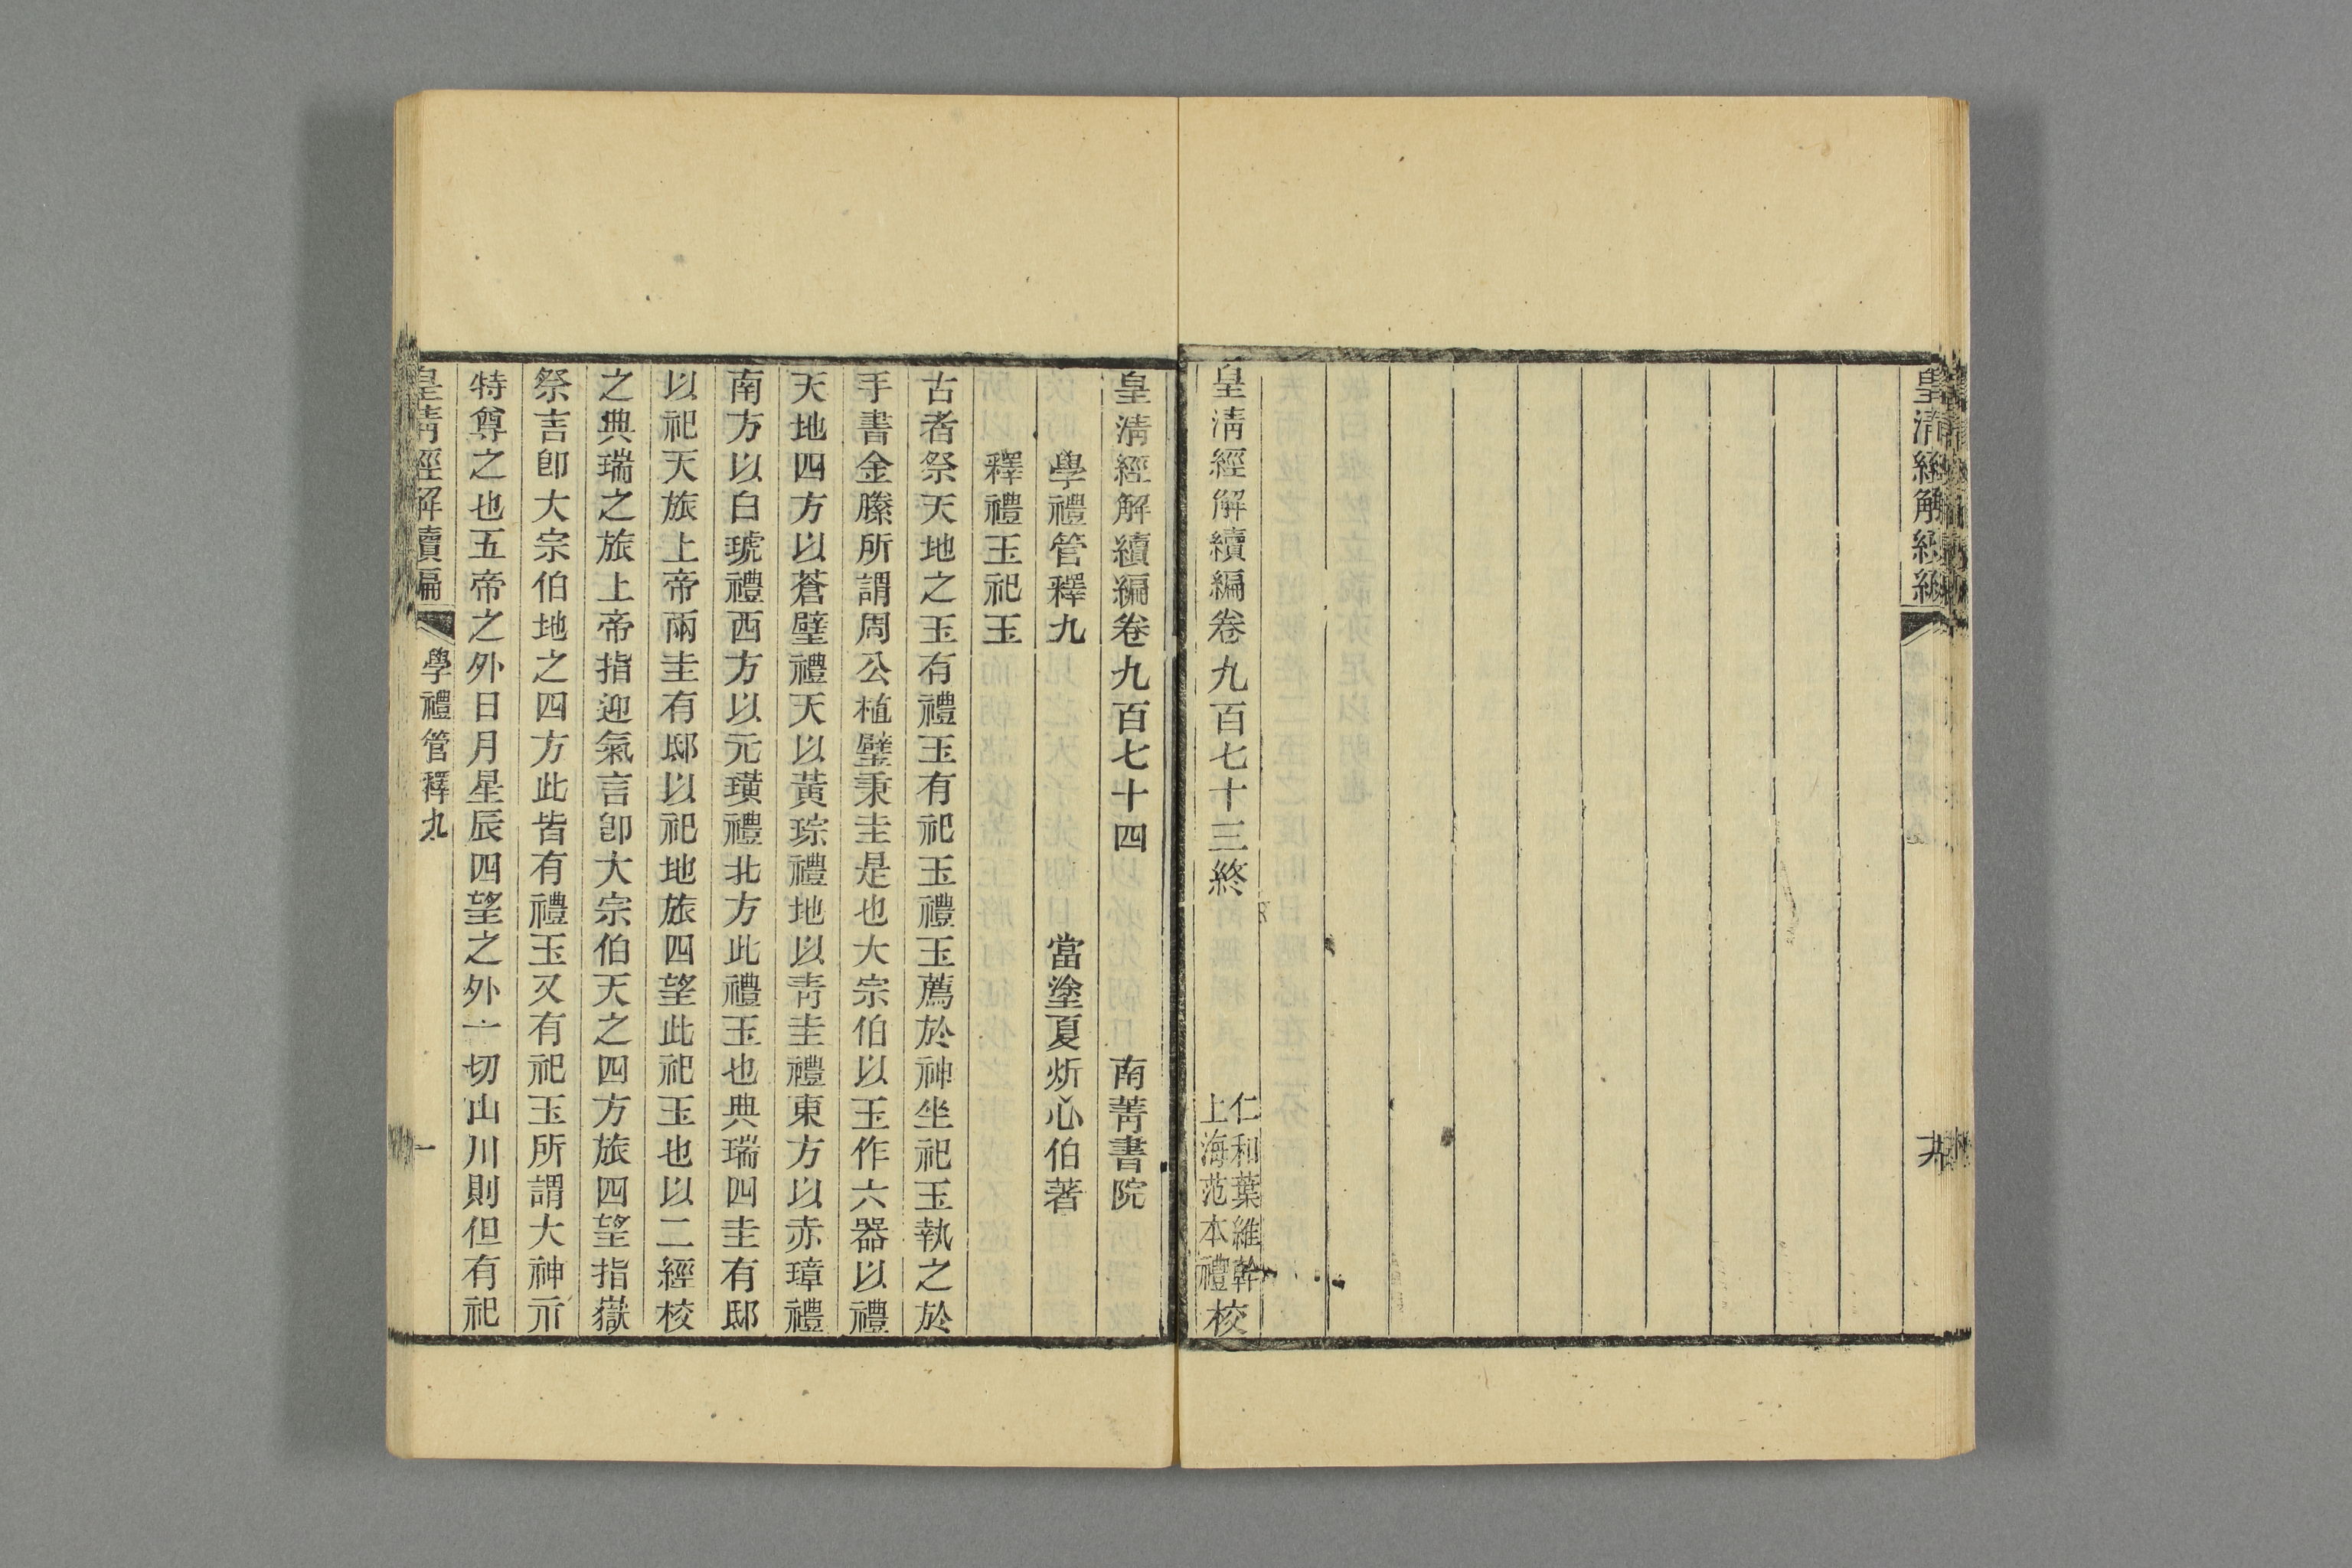 皇清經解續編
皇清經解續編卷九百七十三終
仁和葉維幹
上海范本禮
校
皇清經解續編卷九百七十四　南菁書院
學禮管釋九　當塗夏炘心伯著
釋禮玉祀玉
古者祭天地之玉有禮玉有祀玉禮玉薦於神坐祀玉執之於
手書金縢所謂周公植璧秉圭是也大宗伯以玉作六器以禮
天地四方以蒼璧禮天以黃琮禮地以青圭禮東方以赤璋禮
南方以白琥禮西方以元璜禮北方此禮玉也典瑞四圭有邸
以祀天旅上帝兩圭有邸以祀地旅四望此祀玉也以二經校
之典瑞之旅上帝指迎氣言卽大宗伯天之四方旅四望指嶽
祭言卽大宗伯地之四方此皆有禮玉又有祀玉所謂大神示
特尊之也五帝之外日月星辰四望之外一切山川則但有祀
皇清經解續編
學禮管釋九
一